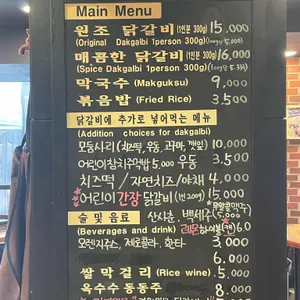 Main Menu
원조 닭갈비(1인분 300g) 15,000
(Original Dakgalbi 1person 300g)
매콤한 닭갈비(1인분 300g) 16,000
(Spice Dakgalbi 1person 300g)
막국수 (Makguksu) 9,000
볶음밥 (Fried Rice) 3,500
닭갈비에 추가로 넣어먹는 메뉴
(Addition choices for dakgalbi)
모둠사리 10,000
우동 3,500
치즈떡 / 자연치즈/야채 4,000
*어린이 간장 닭갈비 15,000
술 및 음료 산사춘, 백세주
(Beverages and drink)
오렌지주스, 제로콜라, 환타 3,000
6,000
쌀 막걸리 (Rice wine) 5,000
옥수수 동동주 8,000